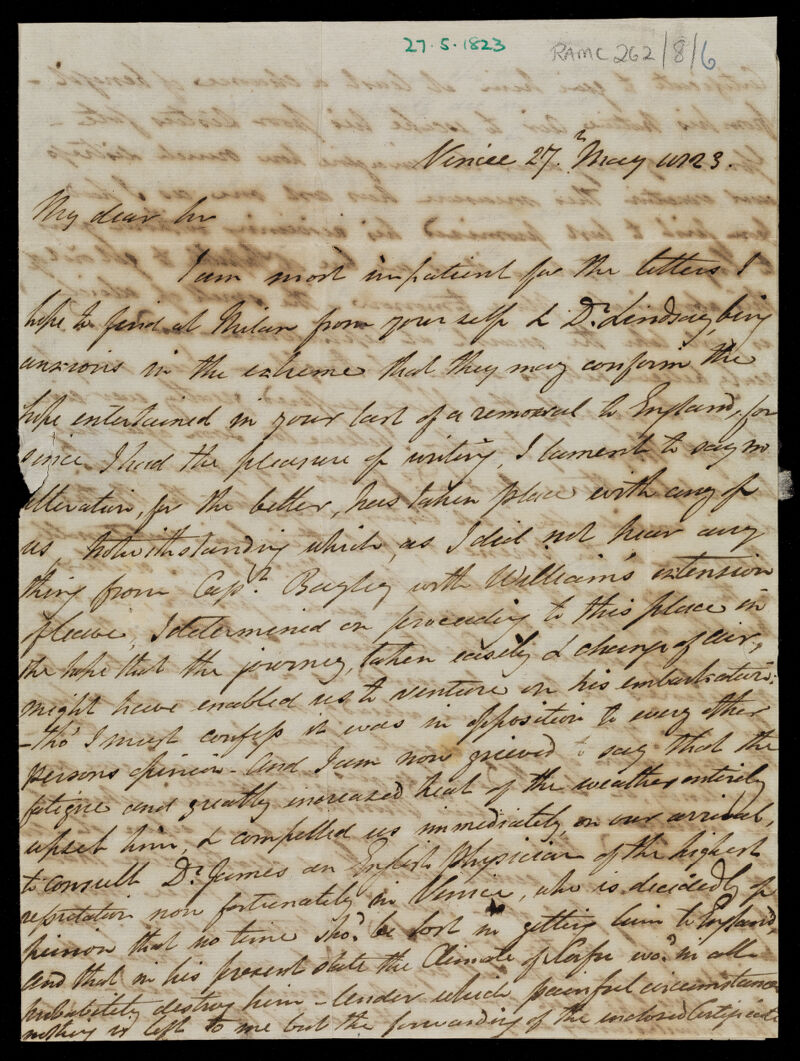 27.5.1823
RAMC 262/8/6
Venice 27.th May 1823.
My dear Sir
I am most impatient for the letters I
hope to find at Milan from yourself & Dr. Lindsay, being
anxious in the extreme that they may conform the
hope entertained in your last of a removal to England, for
since I had the pleasure of writing, I lament to say no
alteration, for the better, has taken place with any of
us, notwithstanding which, as I did not hear any
thing from Capt. Bagley with William's extension
of leave, I determined on proceeding to this place in
the hope that the journey, taken easily & change of air,
might have enabled us to venture on his embarkation:
-tho' I must confess it was in opposition to every other
persons opinion - And I am now grieved to say that the
fatigue and greatly increased heat of the weather entirely
upset him, & compelled us immediately, on our arrival,
to consult Dr. James an English Physician of the highest
reputation now fortunately in Venice, who is decidedly of
opinion that no time sho.d be lost in getting him to England,
and that in his present state the Climate of Corfu wo.d in all
probability destroy him - Under which painful circumstances
nothing is left to me but the forwarding of the enclosed Certificate